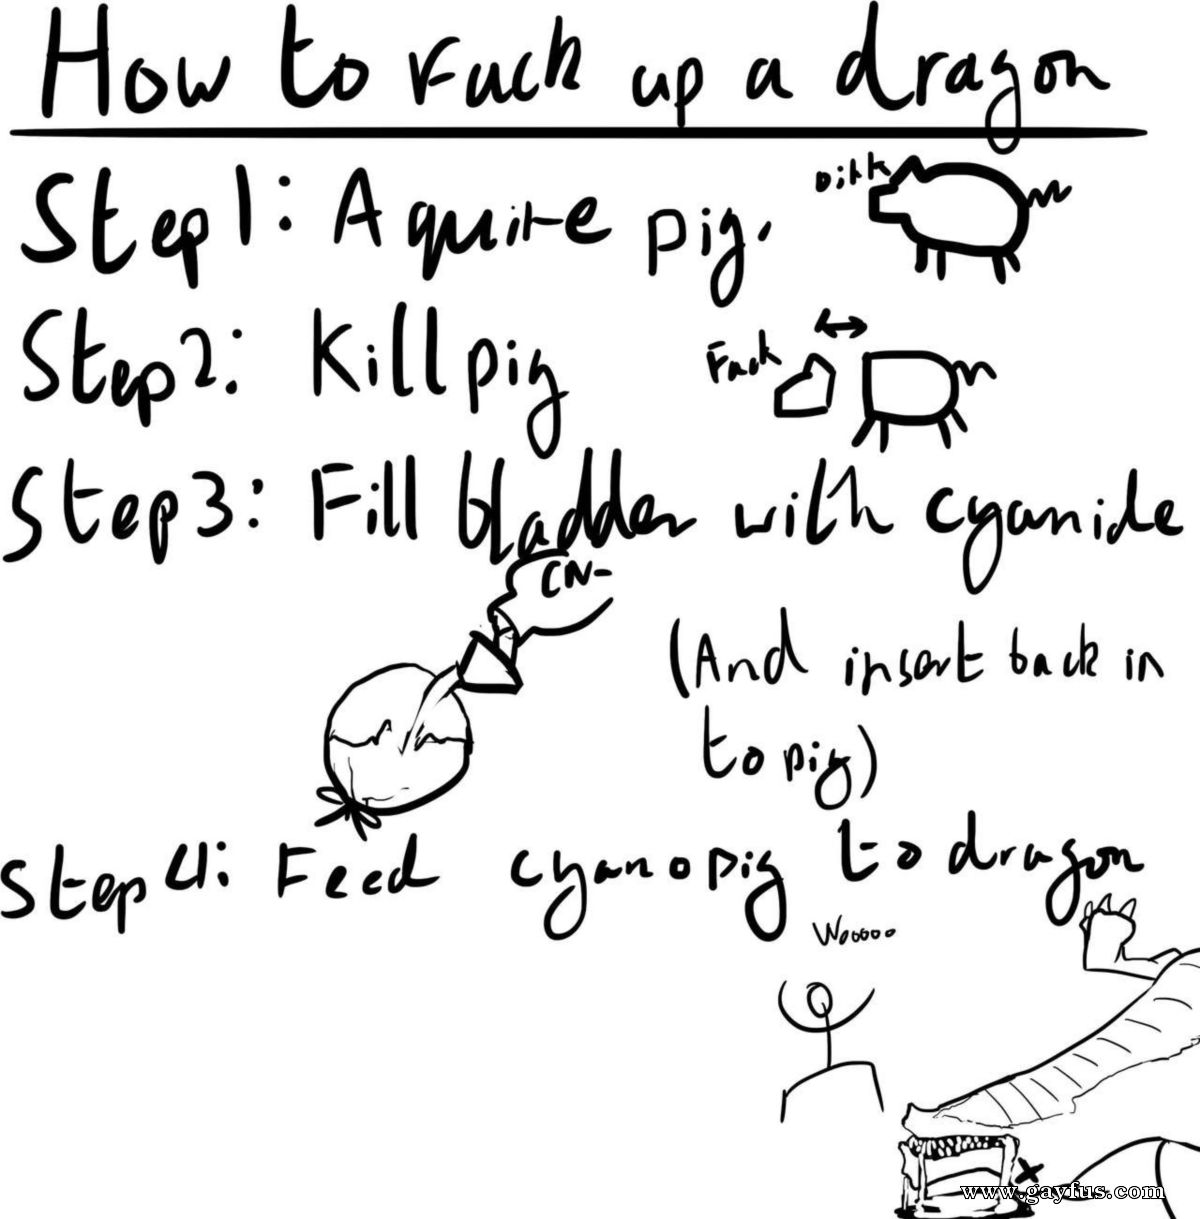 How to Fuck up a dragon
Step 1: Aquire pig.
Step 2: Kill pig
Fuck
Step 3: Fill bladder with cyanide
CN-
(And insert back in
to pig)
Step 4: Feed cyanopig to dragon
Wooooo
www.gayfus.com